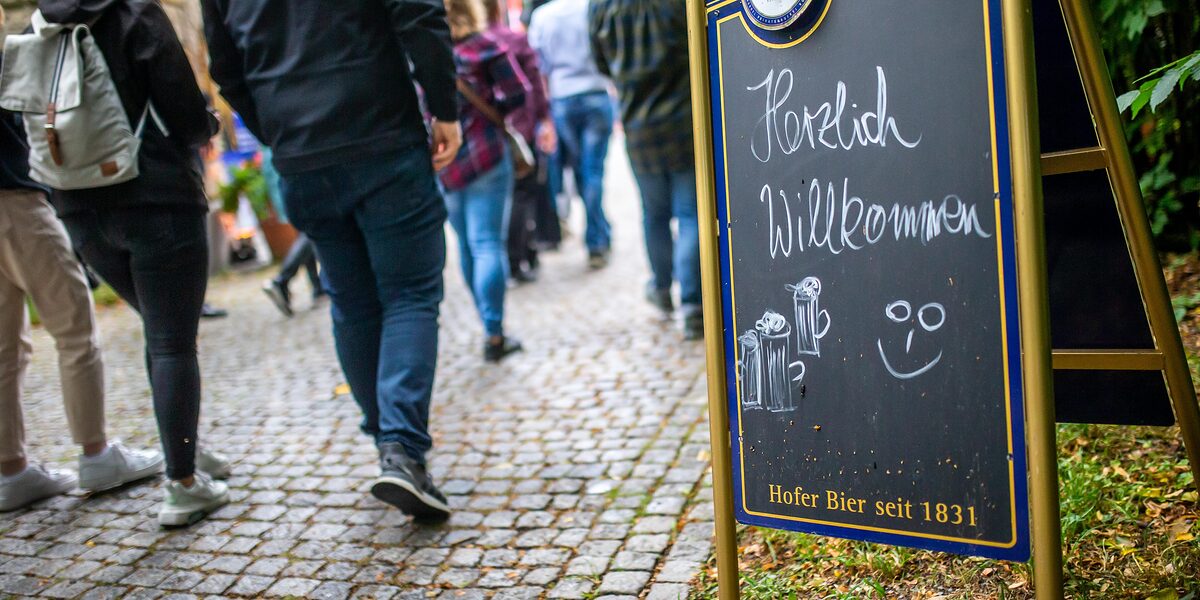 Herzlich
Willkommen
Hofer Bier seit 1831